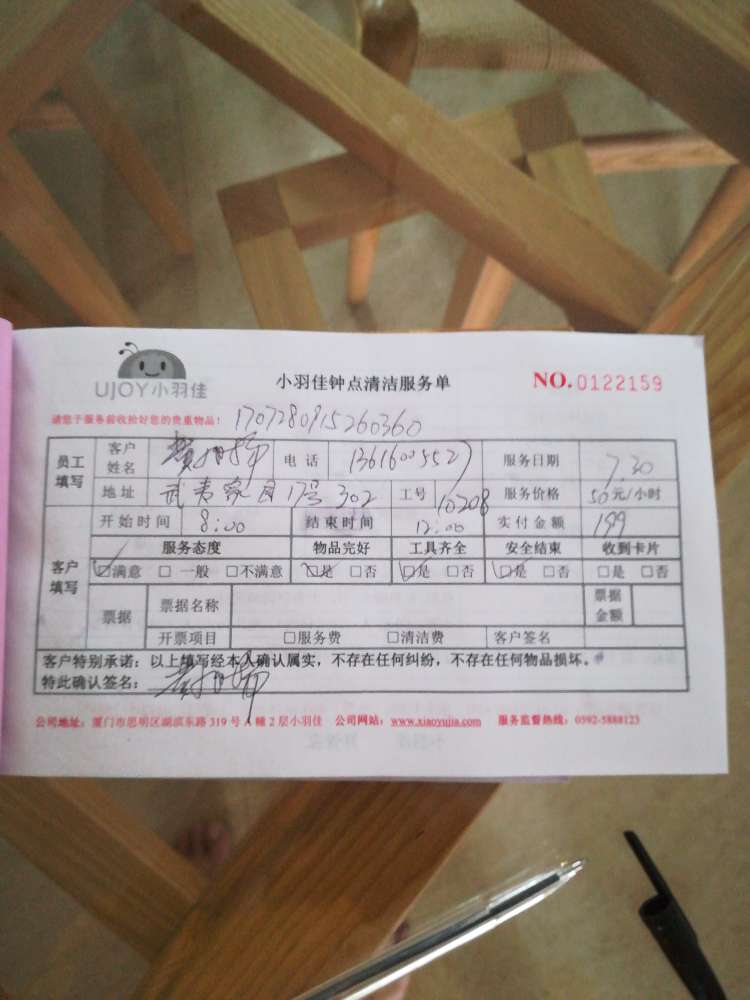 UJOY小羽佳
小羽佳钟点清洁服务单
NO.0122159
请您于服务前收拾好您的贵重物品！ 1707280915260360
员工填写 客户姓名 电话 13616005527 服务日期 7.30
地址 武夷家园17号302 工号 10208 服务价格 50元/小时
客户填写 开始时间 8:00 结束时间 12:00 实付金额 199
服务态度 物品完好 工具齐全 安全结束 收到卡片
☑满意 □一般 □不满意 ☑是 □否 ☑是 □否 ☑是 □否 □是 □否
票据 票据名称 票据金额
开票项目 □服务费 □清洁费 客户签名
客户特别承诺：以上填写经本人确认属实，不存在任何纠纷，不存在任何物品损坏。
特此确认签名：
公司地址：厦门市思明区湖滨东路 319 号 A 幢 2 层小羽佳 公司网站：www.xiaoyujia.com 服务监督热线：0592-5888123